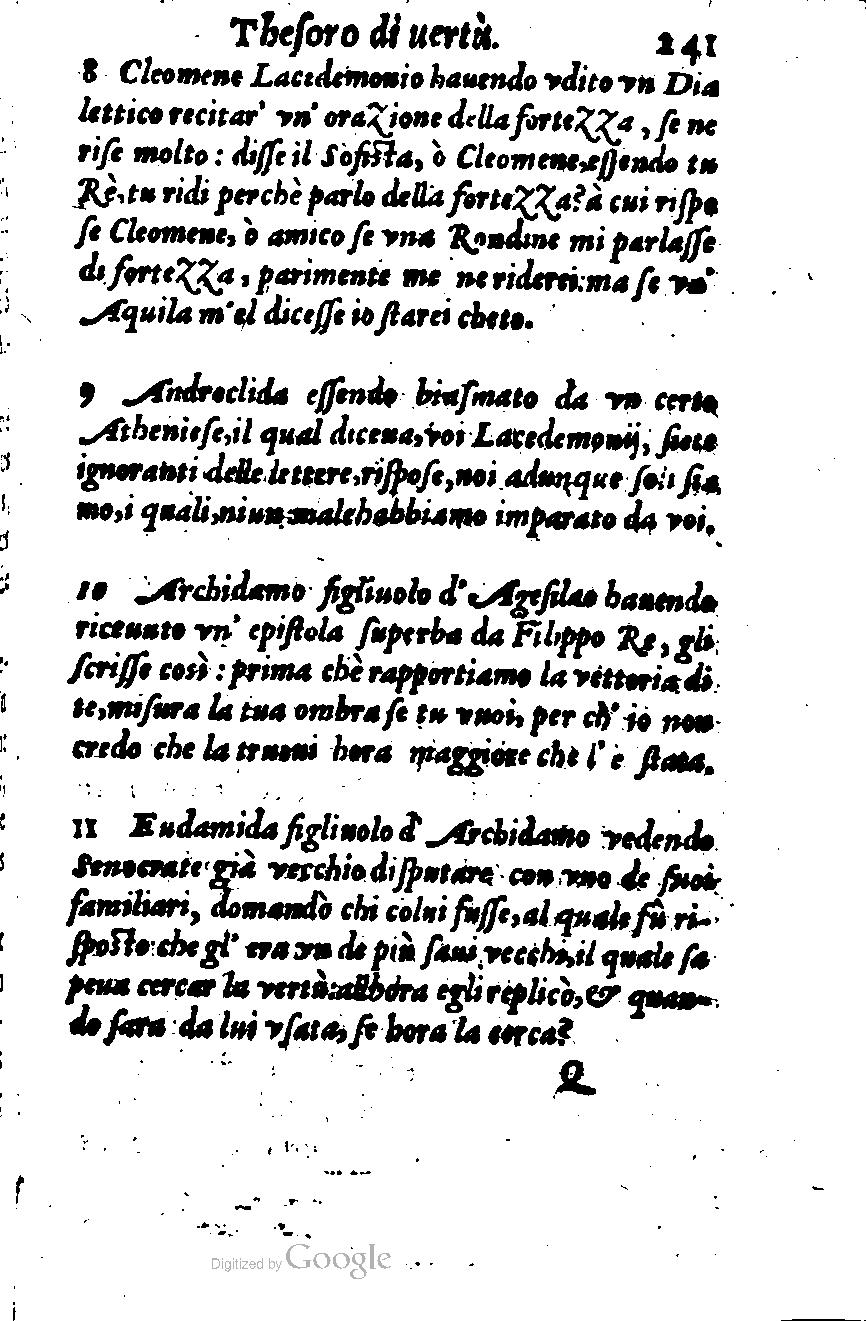 Thesoro di uertù. 241
8 Cleomene Lacedemonio hauendo vdito vn Dia
lettico recitar' vn' orazione della fortezza, se ne
rise molto: disse il Sofista, ò Cleomene, essendo tu
Rè, tu ridi perchè parlo della fortezza? à cui rispo
se Cleomene, ò amico se vna Rondine mi parlasse
di fortezza, parimente me ne riderei: ma se vn'
Aquila m'el dicesse io starei cheto.
9 Androclida essendo biasmato da vn certo
Atheniese, il qual diceua, voi Lacedemonij, siete
ignoranti delle lettere, rispose, noi adunque soli sia
mo, i quali, niun male habbiamo imparato da voi.
10 Archidamo figliuolo d' Agesilao hauendo
riceuuto vn' epistola superba da Filippo Re, gli
scrisse così: prima chè rapportiamo la vittoria di
te, misura la tua ombra se tu vuoi, per ch' io non
credo che la truoui hora maggiore che l' è stata.
11 Eudamida figliuolo d' Archidamo vedendo
Senocrate già vecchio disputare con vno de suoi
familiari, domandò chi colui fusse, al quale fù ri-
sposto che gl' era vn de più saui vecchi, il quale sa
peua cercar la vertù: allhora egli replicò, & quan-
do sara da lui vsata, se hora la cerca?
Q
Digitized by Google